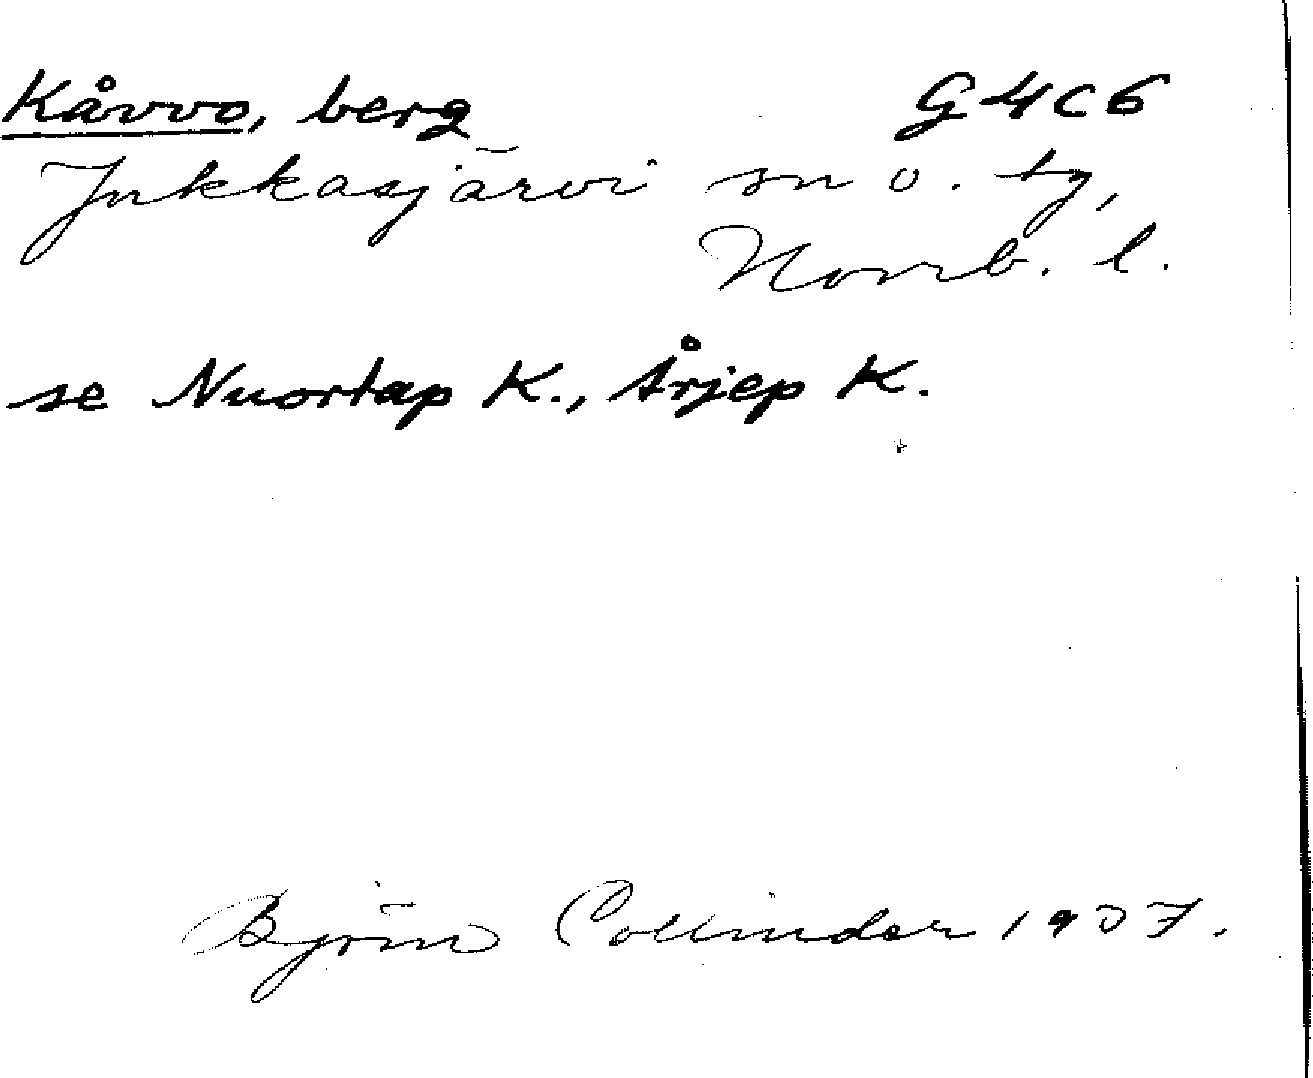 Kåvvo, berg G 4 C 6
Jukkasjärvi sn o. tg,
Norrb. l.
se Nuortap K., Årjep K.
Björn Collinder 1937.